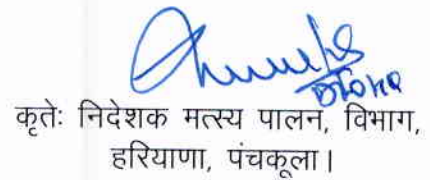 कृतेः निदेशक मत्स्य पालन, विभाग,
हरियाणा, पंचकूला।